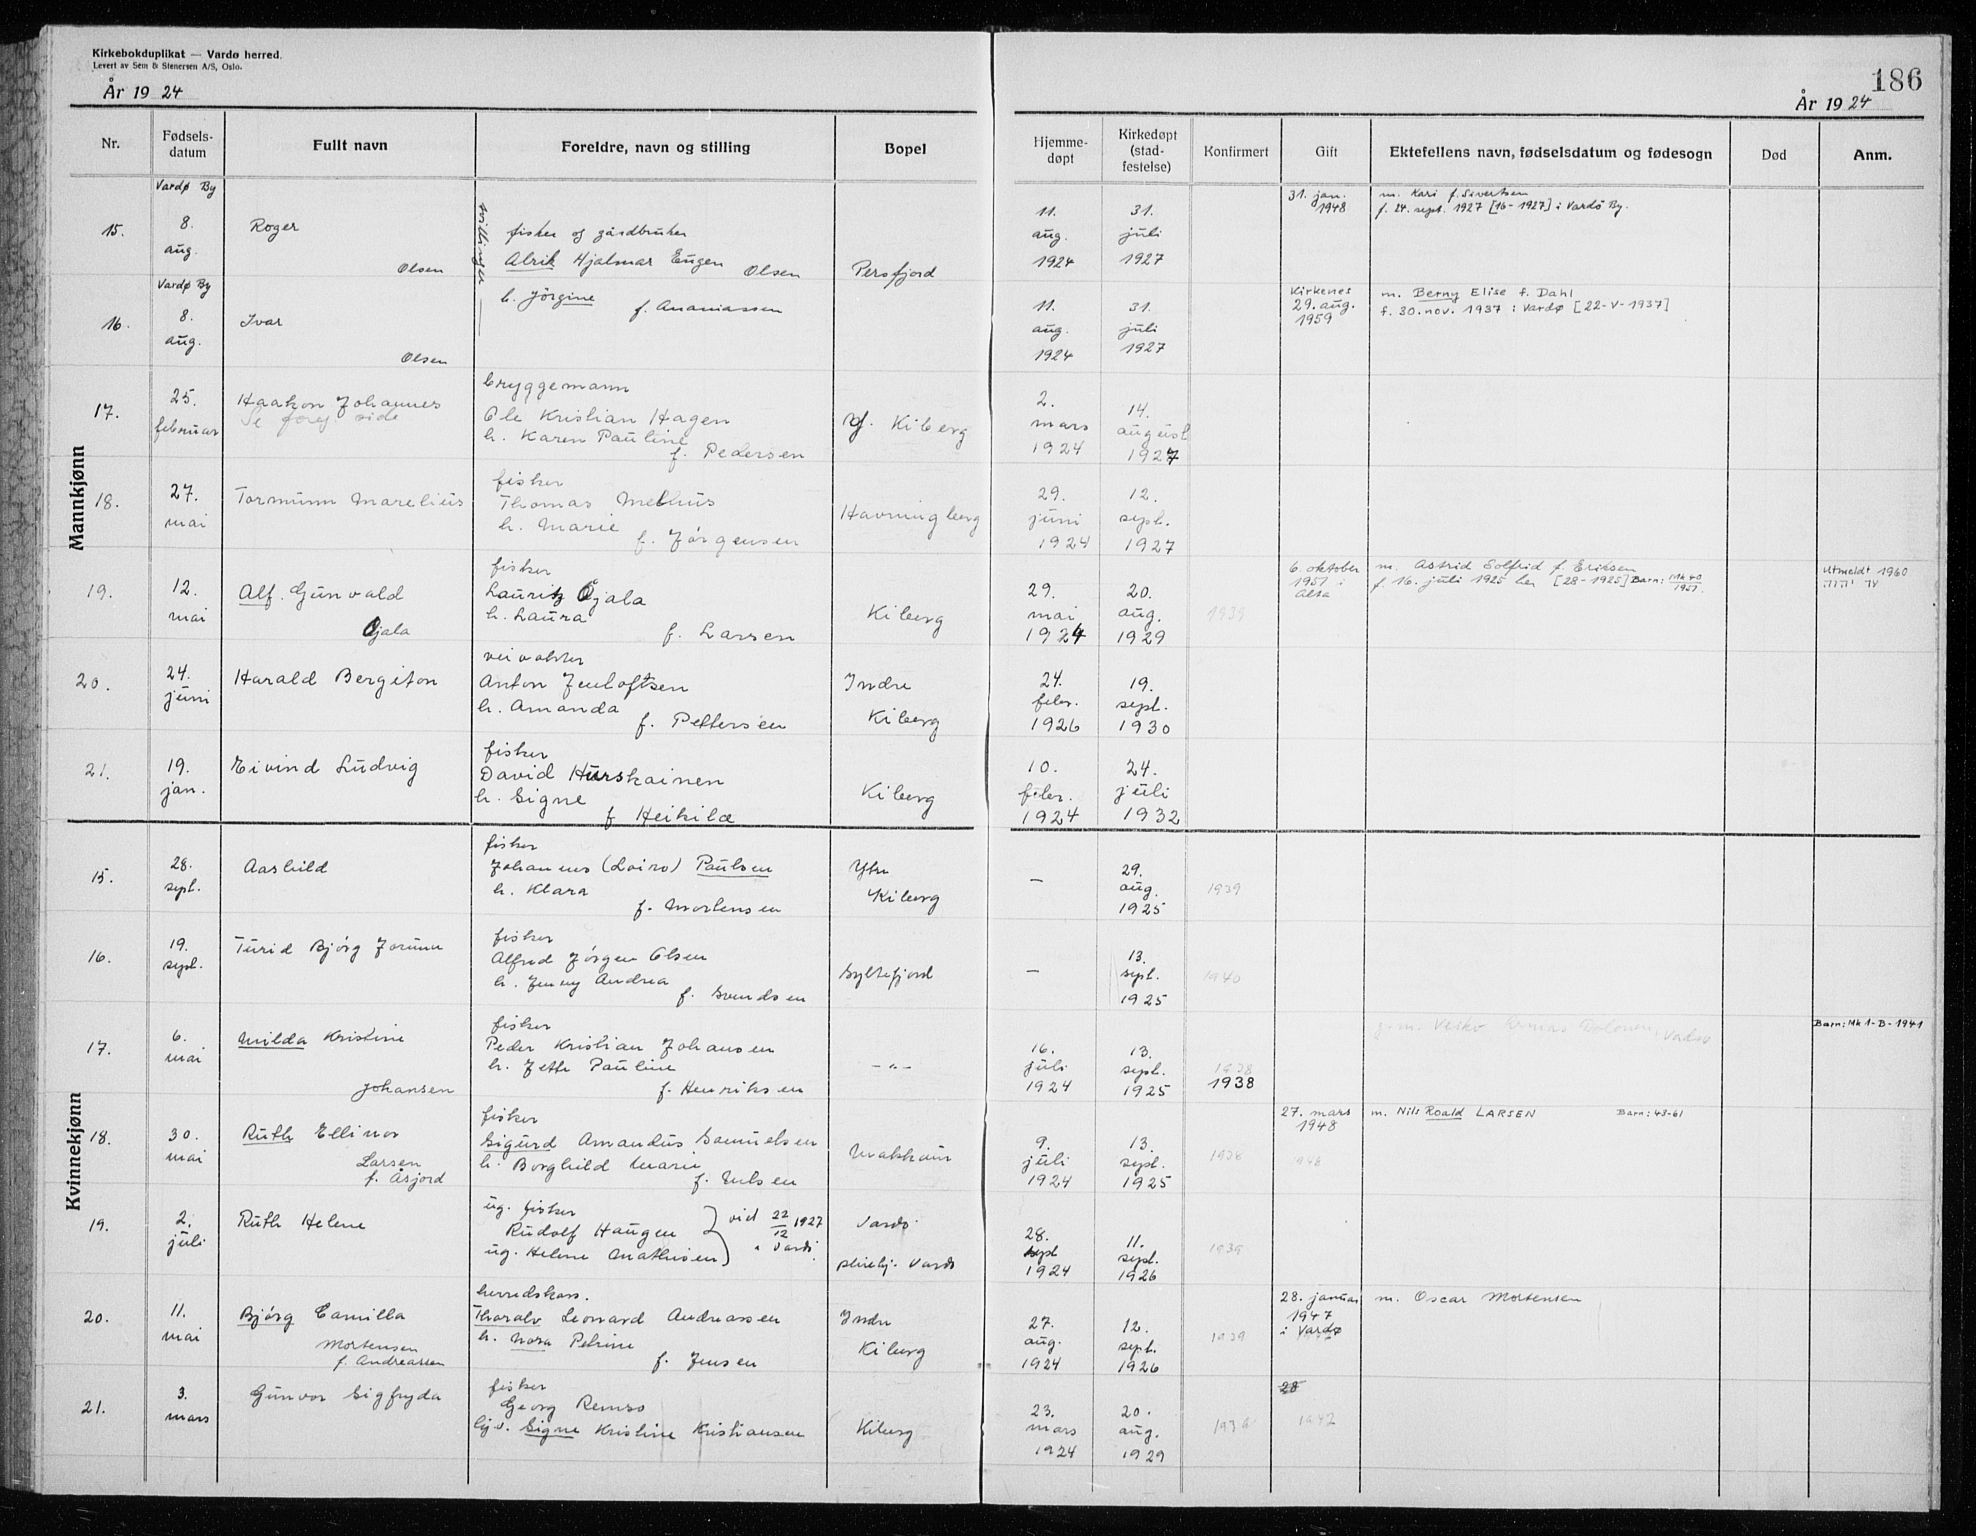 Kirkebokduplikat — Vardø herred.
Levert av Sem & Stenersen A/S, Oslo.
År 1924
186
År 1924
Nr.
Fødsels-
datum
Fullt navn
Foreldre, navn og stilling
Bopel
Hjemme-
døpt
Kirkedøpt
(stad-
festelse)
Konfirmert
Gift
Ektefellens navn, fødselsdatum og fødesogn
Død
Anm.
Mannkjønn
Vardø By
15.
8.
aug.
Roger
Olsen
tvillinger
fisker og gårdbruker
Alrik Hjalmar Eugen Olsen
h. Jörgine f. Ananiassen
Persfjord
11.
aug.
1924
31.
juli
1927
31. jan.
1948
m. Kari f. Sivertsen
f. 24. sept. 1927 [16-1927] i Vardö By.
Vardø By
16.
8.
aug.
Ivar
Olsen
11.
aug.
1924
31.
juli
1927
Kirkenes
29. aug.
1959
m. Berny Elise f. Dahl
f. 30. nov. 1937 i Vardø [22-V-1937]
17.
25.
februar
Haakon Johannes
Se foreg. side
bryggemann
Ole Kristian Hagen
h. Karen Pauline
f. Pedersen
Y. Kiberg
2.
mars
1924
14.
august
1927
18.
27.
mai
Tormunn Marelius
fisker
Thomas Melhus
h. Marie
f. Jørgensen
Havningberg
29.
juni
1924
12.
sept.
1927
19.
12.
mai
Alf. Gunvald
Øjala
fisker
Lauritz Øjala
h. Laura
f. Larsen
Kiberg
29.
mai
1924
20.
aug.
1929
1939
6. oktober
1951 i
Alta
m. Astrid Solfrid f. Eriksen
f. 16. juli 1925 her [28-1925] Barn: Mk 40/1951.
Utmeldt 1960
עד יהוה
20.
24.
juni
Harald Bergiton
veivokter
Anton Jenloftsen
h. Amanda
f. Pettersen
Indre
Kiberg
24.
febr.
1926
19.
sept.
1930
21.
19.
jan.
Eivind Ludvig
fisker
David Hurskainen
h. Signe
f Heikilæ
Kiberg
10.
febr.
1924
24.
juli
1932
Kvinnekjønn
15.
28.
sept.
Aashild
fisker
Johannes (Loiro) Paulsen
h. Klara
f. Mortensen
Ytre
Kiberg
—
29.
aug.
1925
1939
16.
19.
sept.
Turid Bjórg Jorunn
fisker
Alfred Jørgen Olsen
h. Jenny Andrea
f. Svendsen
Syltefjord
—
13.
sept.
1925
1940
17.
6.
mai
Milda Kristine
Johansen
fisker
Peder Kristian Johansen
h. Jette Pauline
f. Henriksen
—"—
16.
juli
1924
13.
sept.
1925
1938
1938
Vadsø
Barn: Mk 1-B-1941
18.
30.
mai
Ruth Ellinor
Larsen
f. Åsjord
fisker
Sigurd Amandus Samuelsen
h. Borghild Marie
f. Nilsen
Makkaur
9.
juli
1924
13.
sept.
1925
1938
27. mars
1948
1948
m. Nils Roald LARSEN Barn: 43-61
19.
2.
juli
Ruth Helene
ug. fisker
Rudolf Haugen
ug. Helene Mathisen
} vied 22/12 1927
i Vardø.
Vardø.
pleiehj. Vardø
28.
sept
1924
11.
sept.
1926
1939
20.
11.
mai
Bjórg Camilla
Mortensen
f. Andreassen
herredskass.
Thoralv Leonard Andreassen
h. Nora Petrine
f. Jensen
Indre
Kiberg
27.
aug.
1924
12.
sept.
1926
1939
28. januar
1947
i Vardø
m. Oscar Mortensen
21.
3.
mars
Gunvor Sigfryda
fisker
Georg Remso
Signe Kristine Kristiansen
Kiberg
23.
mars
1924
20.
aug.
1929
28
1942